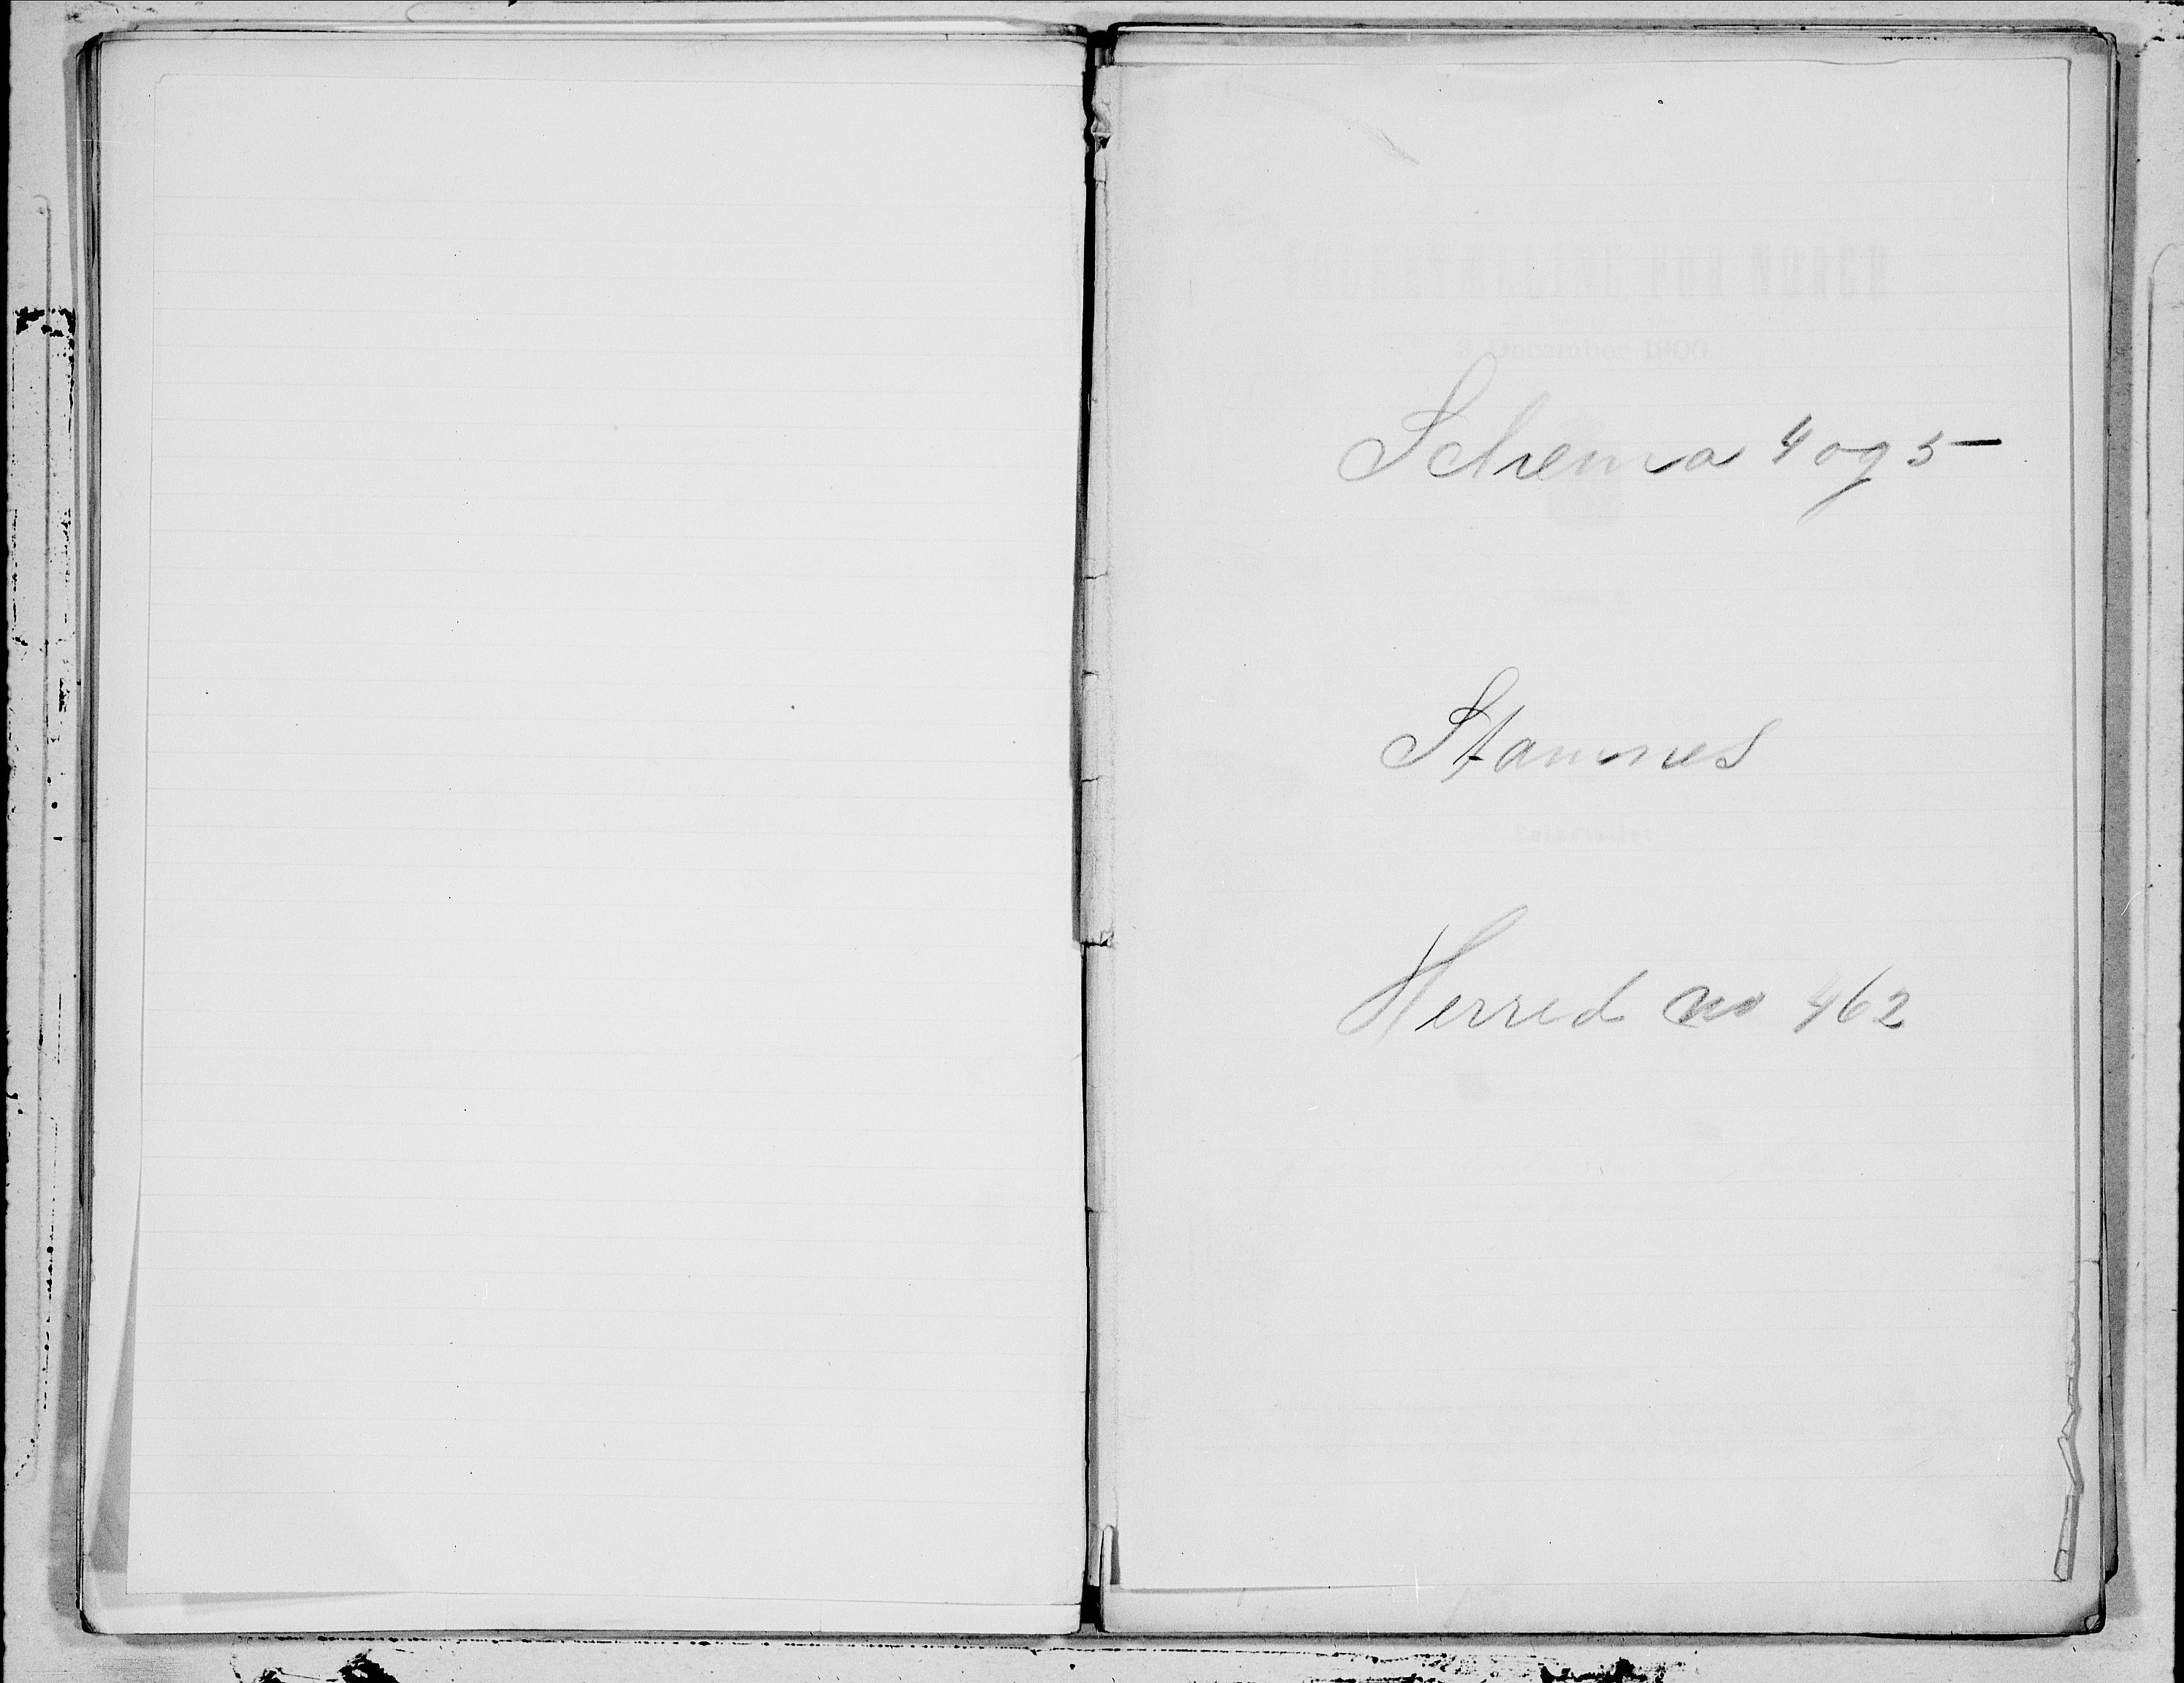 FOLKETÆLLING FOR NORGE
3 December 1900.
Schema 4 og 5
Stamnes
Herred no 462